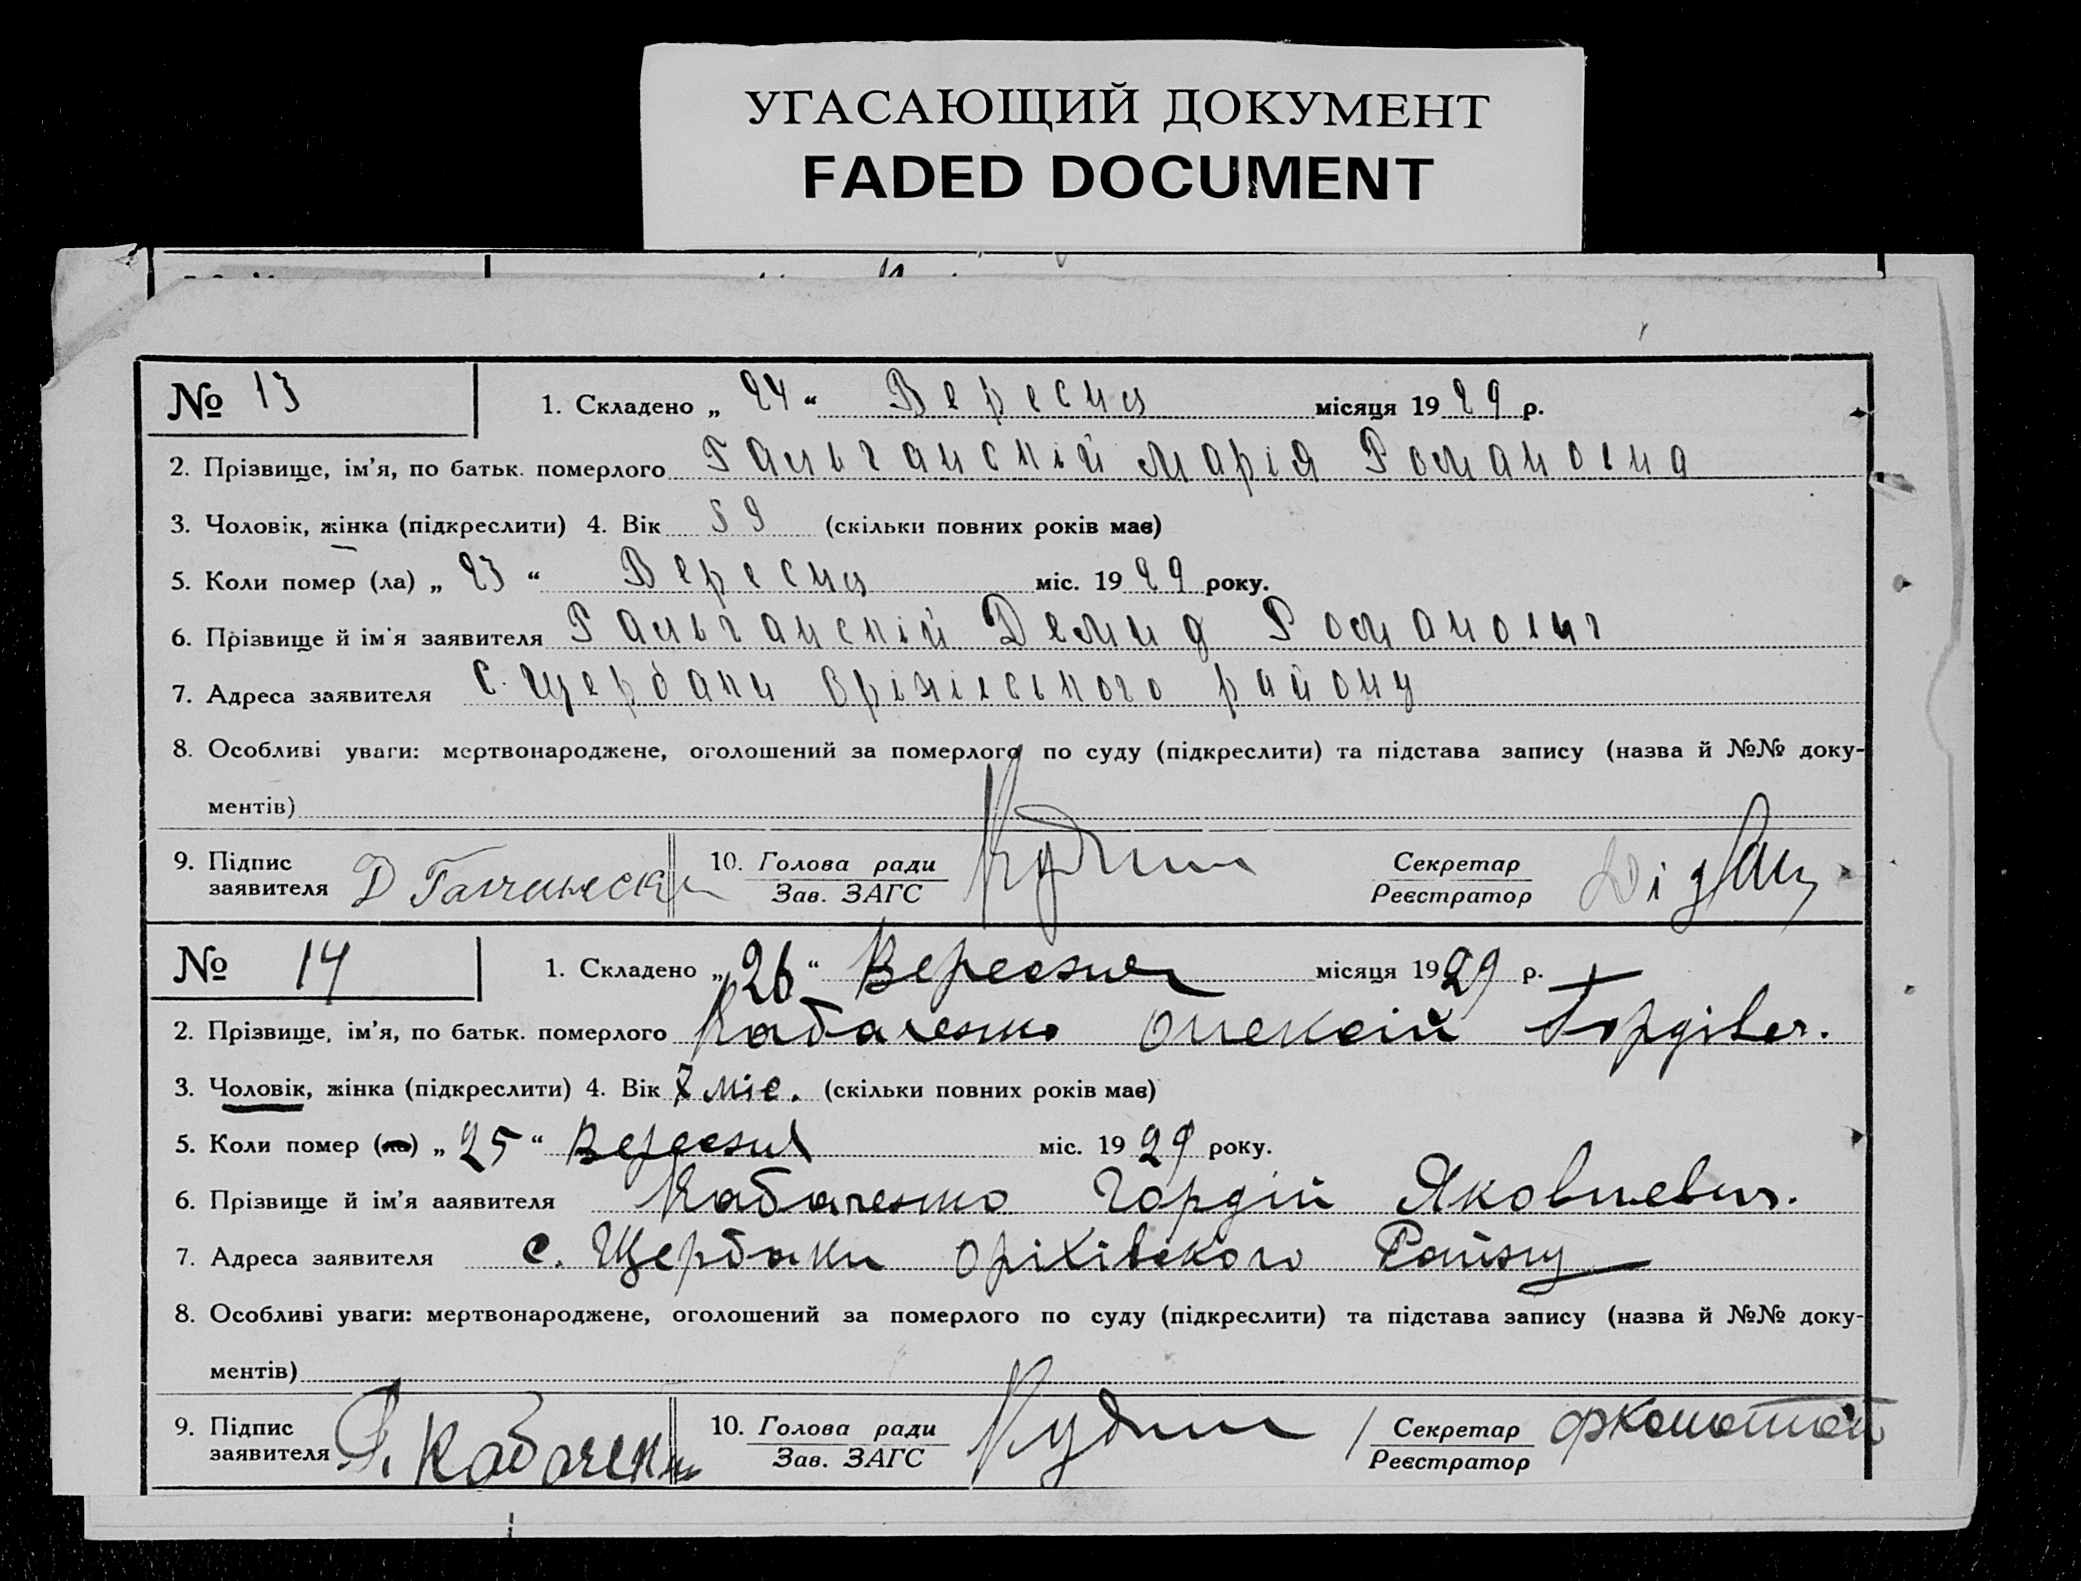 УГАСАЮЩИЙ ДОКУМЕНТ
FADED DOCUMENT
№ 13 1. Складено „ 24 “ Вересня місяця 1929 р.
2. Прізвище, ім’я, по батьк. померлого Гальганскій Марія Романовна
3. Чоловік, жінка (підкреслити) 4. Вік 59 (скільки повних років має)
5. Коли помер (ла) „ 23 “ Вересня міс. 1929 року.
6. Прізвище й ім’я заявителя Гальганскій Демид Романович
7. Адреса заявителя с. Щербаки Оріхівського району
8. Особливі уваги: мертвонароджене, оголошений за померлого по суду (підкреслити) та підстава запису (назва й №№ доку-
ментів)
9. Підпис заявителя Д 10. Голова ради Зав. ЗАГС Секретар Реєстратор
№ 14 1. Складено „ 26 “ Вересня місяця 1929 р.
2. Прізвище, ім’я, по батьк. померлого Кабаченко Олексій Гордієв.
3. Чоловік, жінка (підкреслити) 4. Вік 7 міс. (скільки повних років має)
5. Коли помер (ла) „ 25 “ Вересня міс. 1929 року.
6. Прізвище й ім’я ааявителя Кабаченко Гордій Яковлевич.
7. Адреса заявителя с. Щербаки Оріхівского Району
8. Особливі уваги: мертвонароджене, оголошений за померлого по суду (підкреслити) та підстава запису (назва й №№ доку-
ментів)
9. Підпис заявителя Г. Кабаченк 10. Голова ради Зав. ЗАГС Секретар Реєстратор